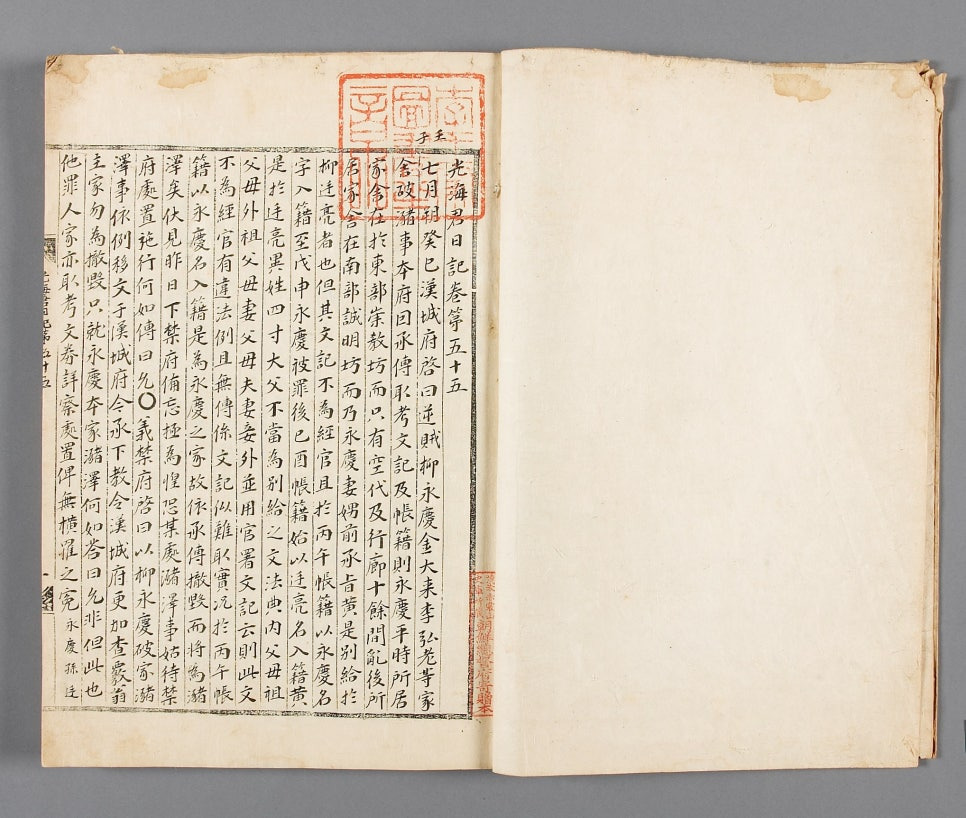 壬子
光海君日記卷第五十五
七月朔癸巳漢城府啓曰逆賊柳永慶金大来李弘老等家
舍破瀦事本府因承傳取考文記及帳籍則永慶平時所居
家舍在於東部崇教坊而只有空代及行廊十餘間亂後所
居家舍在南部誠明坊而乃永慶妻娚前承旨黄是別給於
柳廷亮者也但其文記不為經官且於丙午帳籍以永慶名
字入籍至戊申永慶被罪後己酉帳籍始以廷亮名入籍黄
是於廷亮異姓四寸大父不當為別給之文法典内父母祖
父母外祖父母妻父母夫妻妾外並用官署文記云則此文
不為經官有違法例且無傳係文記似難取實况於丙午帳
籍以永慶名入籍是為永慶之家故依承傳撤毀而將為瀦
澤矣伏見昨日下禁府備忘極為惶恐某處瀦澤事姑待禁
府處置施行何如傳曰允〇義禁府啓曰以柳永慶破家瀦
澤事依例移文于漢城府今承下教令漢城府更加查覈翁
主家勿為撤毀只就永慶本家瀦澤何如答曰允非但此也
他罪人家亦取考文券詳察處置俾無橫罹之寃永慶孫廷
光海君日記卷五十五
一
朝鮮總督府寄贈本